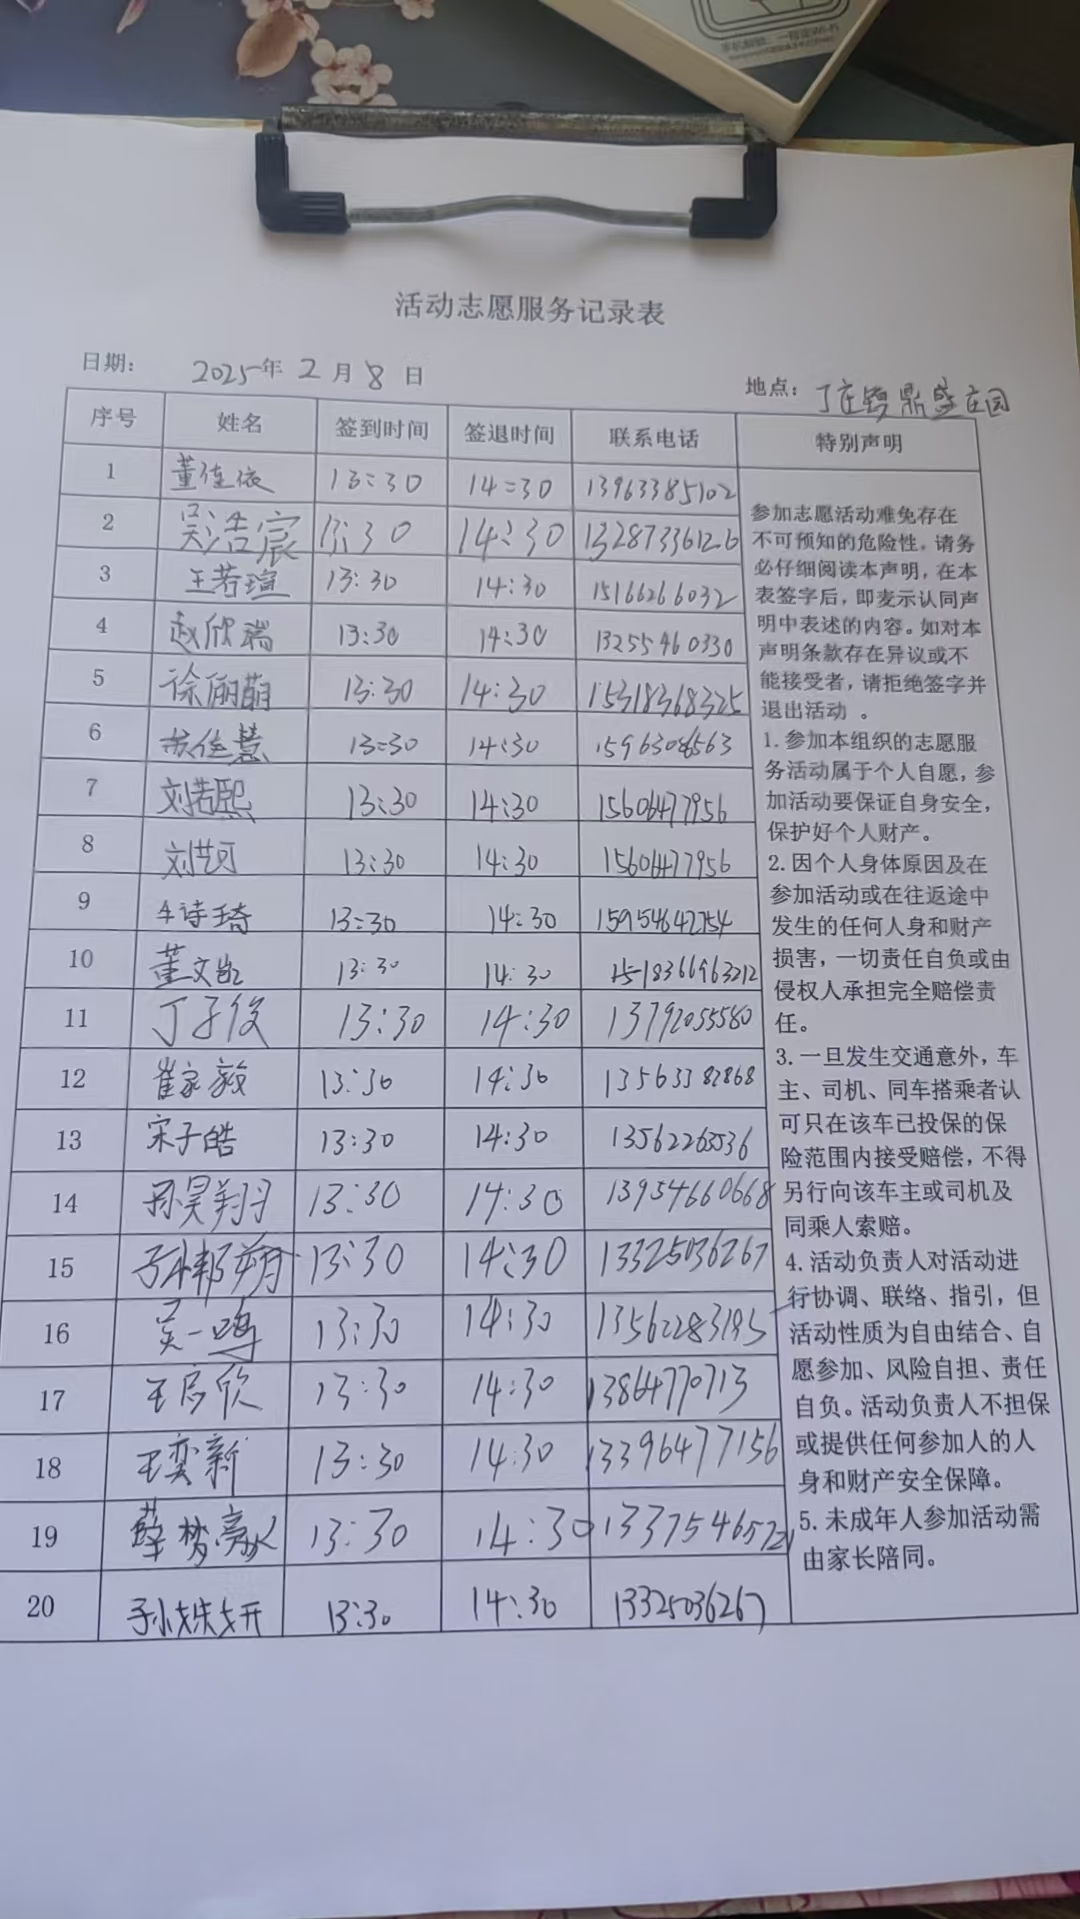 活动志愿服务记录表
日期： 2025年 2 月 8 日
地点： 丁庄镇鼎盛庄园
序号 姓名 签到时间 签退时间 联系电话 特别声明
1 董佳依 13:30 14:30 13963385102
2 吴浩宸 13:30 14:30 13287336126
3 王若瑄 13:30 14:30 15166266032
4 赵欣瑞 13:30 14:30 13255460330
5 徐俪萌 13:30 14:30 15318368325
6 佳慧 13:30 14:30 15963086563
7 刘若熙 13:30 14:30 15606477956
8 刘艺可 13:30 14:30 15606477956
9 诗琦 13:30 14:30 15954642754
10 董文凯 13:30 14:30
11 丁子俊 13:30 14:30 13792055580
12 崔家毅 13:30 14:30 13563382868
13 宋子皓 13:30 14:30 13562263536
14 孙昊翔 13:30 14:30 13954660668
15 孙郡翔 13:30 14:30 13325036267
16 吴一鸣 13:30 14:30 13562283195
17 王启欣 13:30 14:30 13864770713
18 王奕新 13:30 14:30 13396477156
19 薛梦 13:30 14:30 13375465721
20 孙姝妍 13:30 14:30 13325036267
参加志愿活动难免存在
不可预知的危险性，请务
必仔细阅读本声明，在本
表签字后，即麦示认同声
明中表述的内容。如对本
声明条款存在异议或不
能接受者，请拒绝签字并
退出活动 。
1. 参加本组织的志愿服
务活动属于个人自愿，参
加活动要保证自身安全，
保护好个人财产。
2. 因个人身体原因及在
参加活动或在往返途中
发生的任何人身和财产
损害，一切责任自负或由
侵权人承担完全赔偿责
任。
3. 一旦发生交通意外，车
主、司机、同车搭乘者认
可只在该车已投保的保
险范围内接受赔偿，不得
另行向该车主或司机及
同乘人索赔。
4. 活动负责人对活动进
行协调、联络、指引，但
活动性质为自由结合、自
愿参加、风险自担、责任
自负。活动负责人不担保
或提供任何参加人的人
身和财产安全保障。
5. 未成年人参加活动需
由家长陪同。